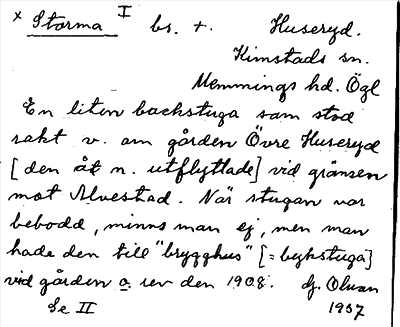 x Storma I bs. +. Huseryd.
Kimstads sn.
Memmings hd. Ögl
En liten backstuga som stod
rakt v. om gården Övre Huseryd
[den åt n. utflyttade] vid gränsen
mot Alvestad. När stugan var
bebodd, minns man ej, men man
hade den till "brygghus" [= bykstuga]
vid gården o. rev den 1908. Hj. Olvan
Se II 1937